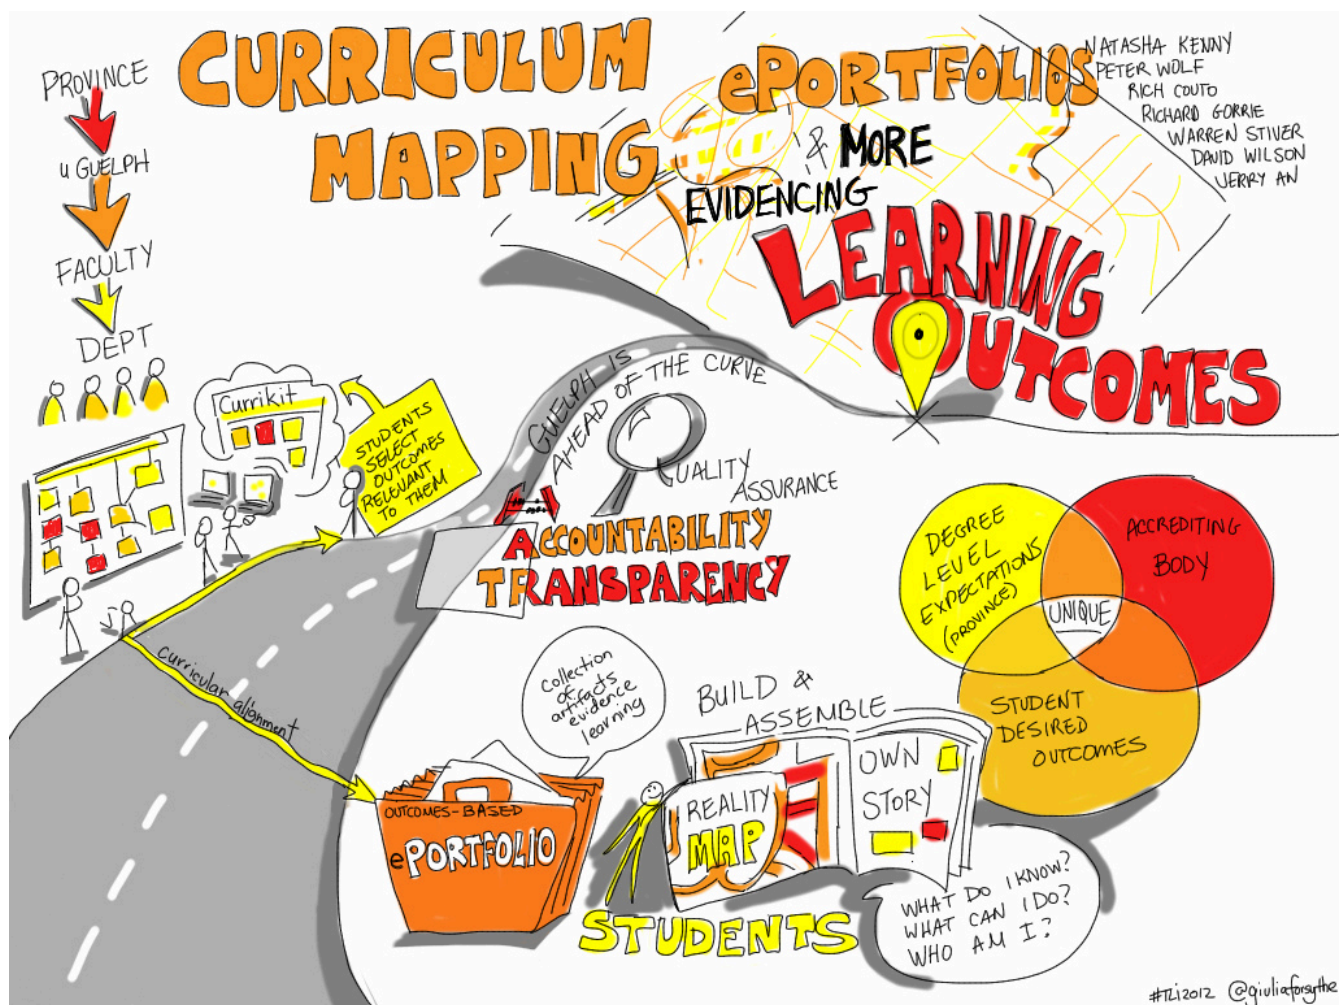 CURRICULUM
MAPPING
ePORTFOLIOS
& MORE
EVIDENCING
LEARNING
OUTCOMES
NATASHA KENNY
PETER WOLF
RICH COUTO
RICHARD GORRIE
WARREN STIVER
DAVID WILSON
JERRY AN
PROVINCE
u GUELPH
FACULTY
DEPT
Currikit
STUDENTS
SELECT
OUTCOMES
RELEVANT
TO THEM
GUELPH IS
AHEAD OF THE CURVE
QUALITY
ASSURANCE
ACCOUNTABILITY
TRANSPARENCY
DEGREE
LEVEL
EXPECTATIONS
(PROVINCE)
ACCREDITING
BODY
UNIQUE
STUDENT
DESIRED
OUTCOMES
curricular alignment
collection
of
artifacts
evidence
learning
OUTCOMES-BASED
ePORTFOLIO
BUILD &
ASSEMBLE
REALITY
MAP
OWN
STORY
STUDENTS
WHAT DO I KNOW?
WHAT CAN I DO?
WHO AM I?
#TLI2012 @giuliaforsythe